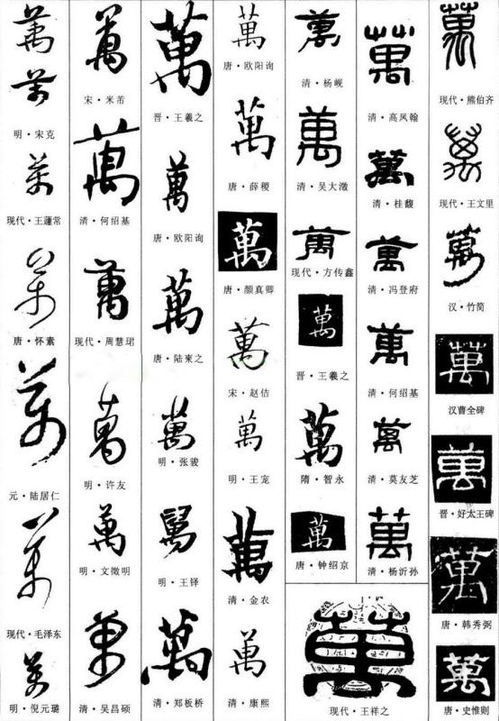 萬
萬
明·宋克
萬
现代·王蘧常
萬
唐·怀素
萬
元·陆居仁
萬
现代·毛泽东
萬
明·倪元璐
萬
宋·米芾
萬
清·何绍基
萬
现代·周慧珺
萬
明·许友
萬
明·文徵明
萬
清·吴昌硕
萬
晋·王羲之
萬
唐·欧阳询
萬
唐·陆柬之
萬
明·张骏
萬
明·王铎
萬
清·郑板桥
萬
唐·欧阳询
萬
唐·薛稷
萬
唐·颜真卿
萬
宋·赵佶
萬
明·王宠
萬
清·金农
萬
清·康熙
萬
清·杨岘
萬
清·吴大澂
萬
现代·方传鑫
萬
晋·王羲之
萬
隋·智永
萬
唐·钟绍京
萬
清·高凤翰
萬
清·桂馥
萬
清·冯登府
萬
清·何绍基
萬
清·莫友芝
萬
清·杨沂孙
萬
现代·王祥之
萬
现代·熊伯齐
萬
现代·王文里
萬
汉·竹简
萬
汉曹全碑
萬
晋·好太王碑
萬
唐·韩秀弼
萬
唐·史惟则